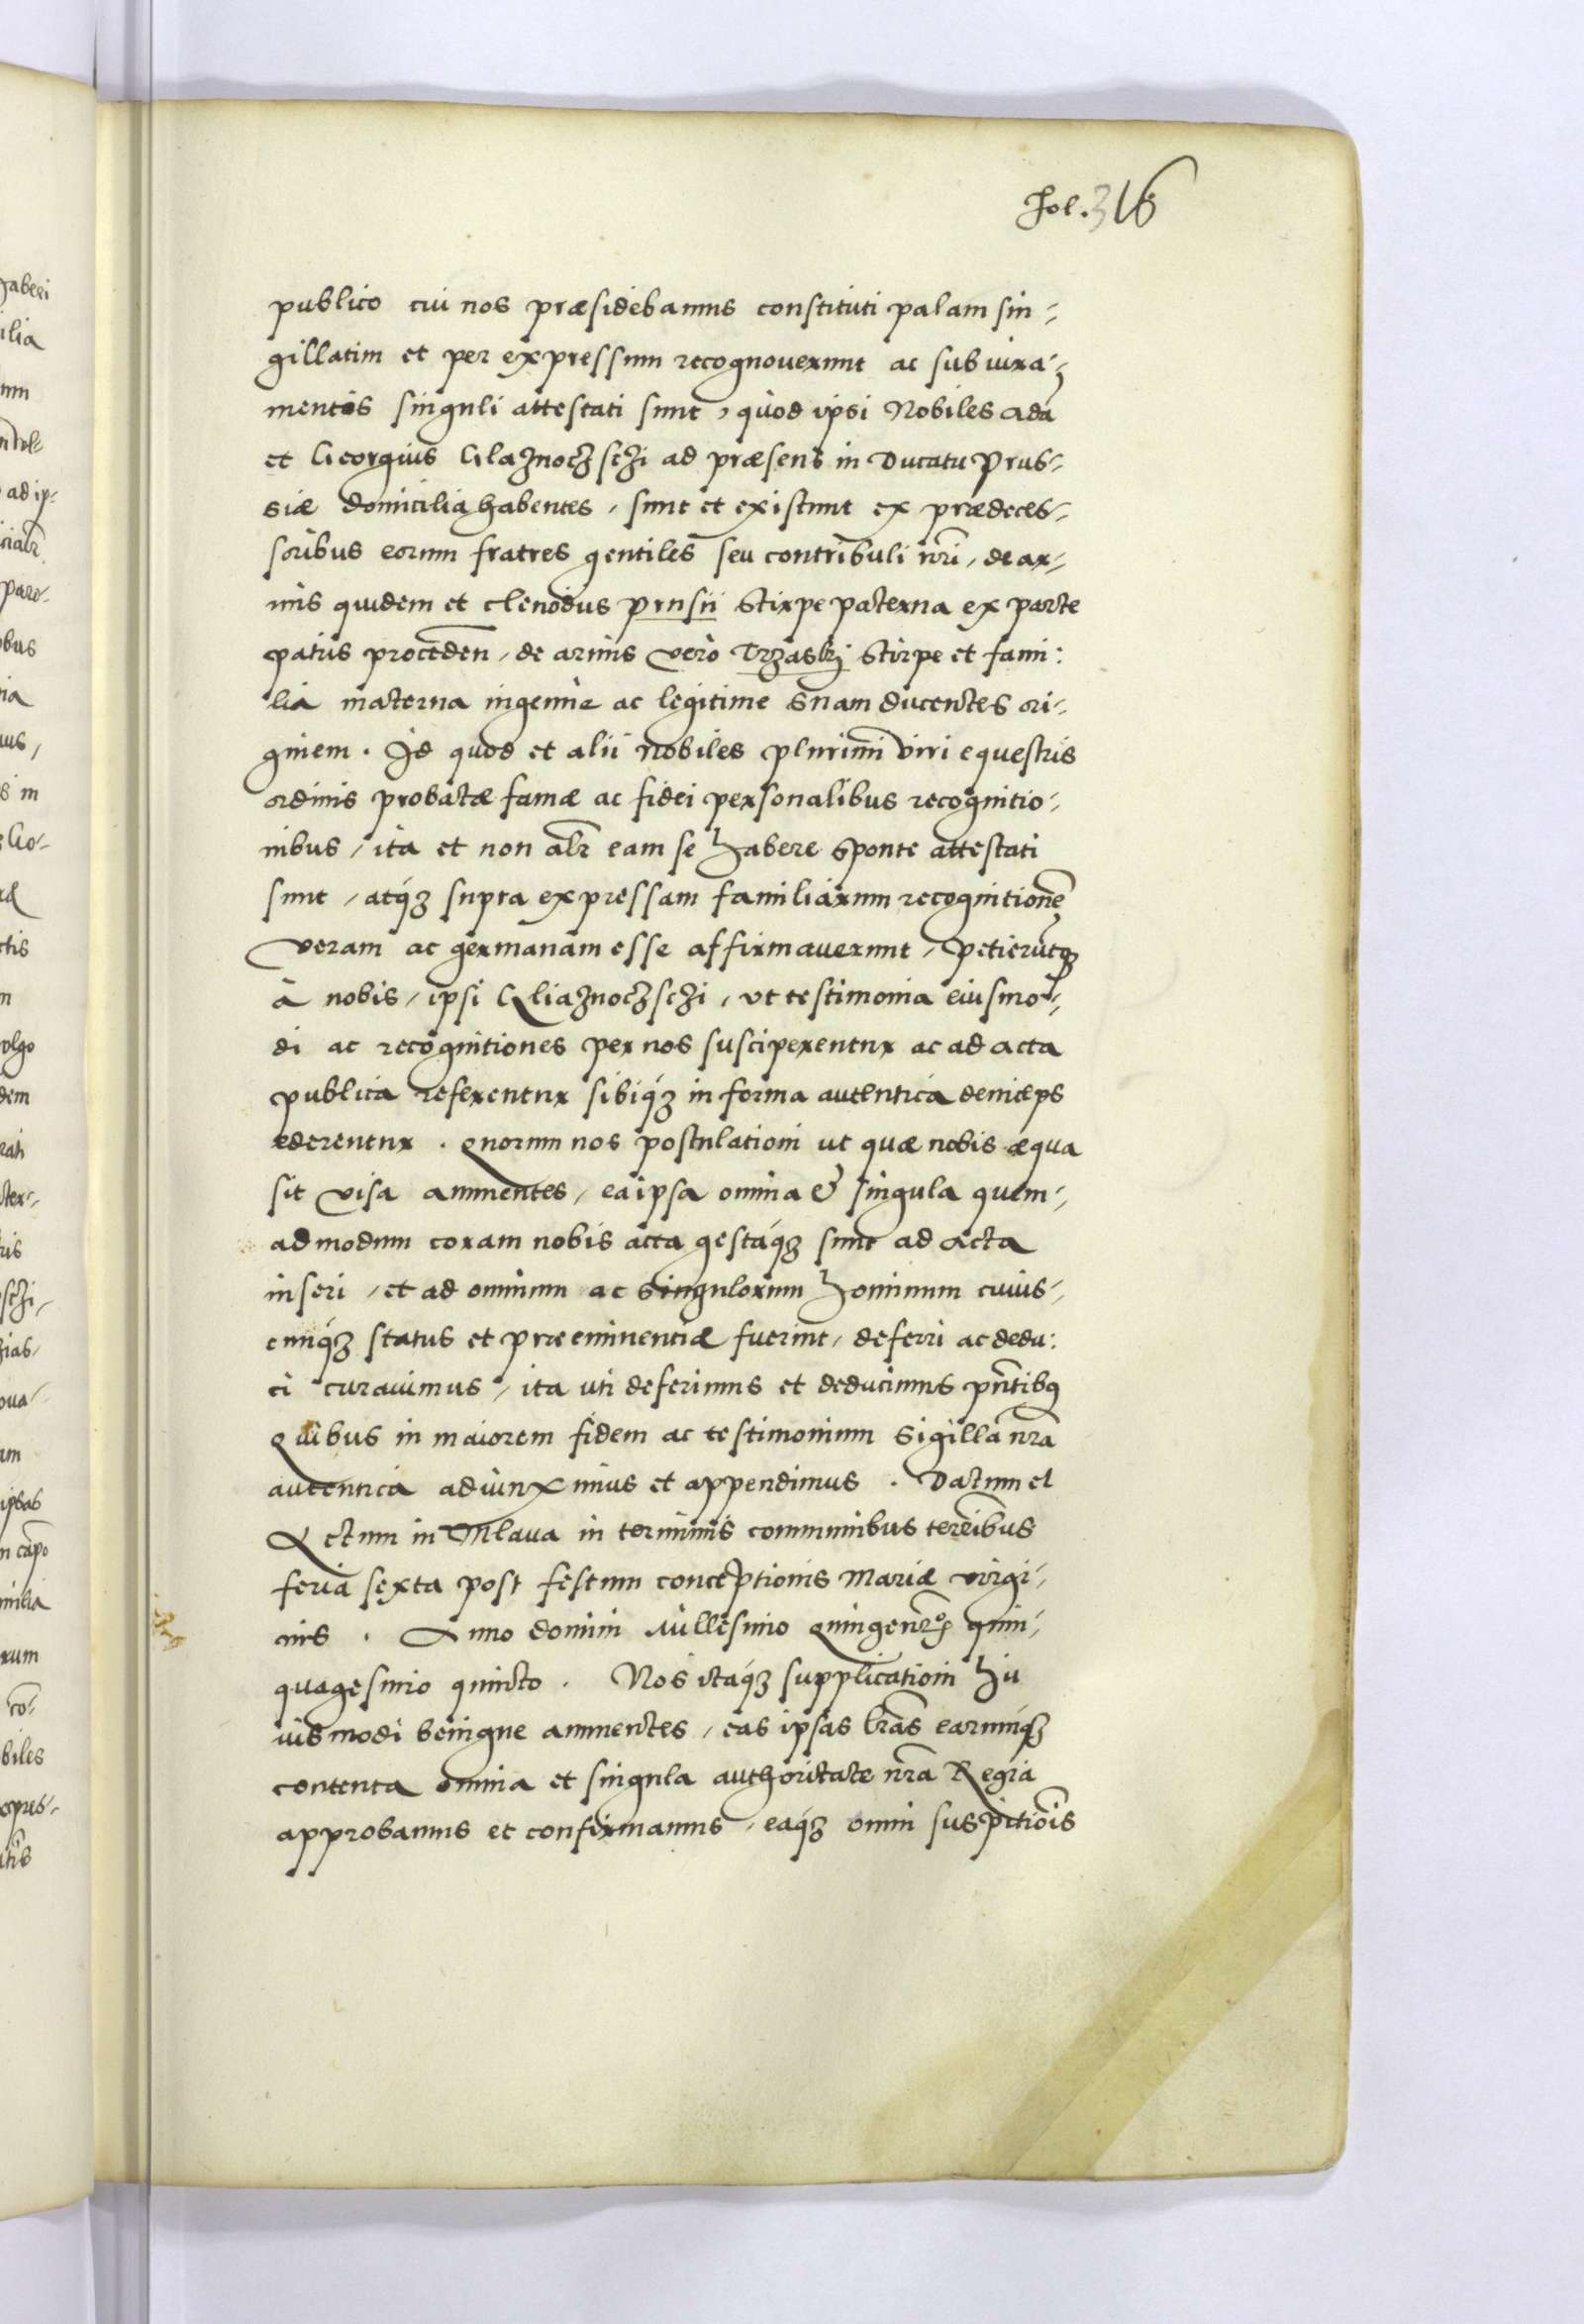 Fol. 316
publico cui nos præsidebamus constituti palam sin-
gillatim et per expressum recognouerunt ac sub iura-
mentis singuli attestati sunt, quòd ipsi Nobiles Adā
et Georgius Glaznoczschi ad præsens in Ducatu Prus-
siæ domicilia habentes, sunt et existunt ex prædeces-
soribus eorum fratres gentiles seu contribuli nr̄i, de ar-
mis quidem et clenodus Prusii stirpe paterna ex parte
patris proceden̄, de armis verò Trzaski stirpe et fami:
lia materna ingenue ac legitime suam ducentes ori-
ginem. Id quod et alii Nobiles plurimi viri equestris
ordinis probatæ famæ ac fidei personalibus recognitio-
nibus, ita et non alr̄ eam se habere sponte attestati
sunt, atq́ꝫ supra expressam familiarum recognitionē
veram ac germanam esse affirmauerunt, petierūtqꝫ
à nobis, ipsi Gliaznoczschi, vt testimonia eiusmo-
di ac recognitiones per nos susciperentur ac ad acta
publica referrentur sibiq́ꝫ in forma autentica deinceps
ederentur. Quorum nos postulationi ut quæ nobis æqua
sit visa annuentes, ea ipsa omnia & singula quem-
admodum coram nobis acta gestaq́ꝫ sunt ad acta
inseri, et ad omnium ac singulorum hominum cuius-
cunq́ꝫ status et præeminentiæ fuerint, deferri ac dedu:
ci curauimus, ita uti deferimus et deducimus pn̄tibꝯ
Quibus in maiorem fidem ac testimonium sigilla nr̄a
autentica adiunximus et appendimus. Datum et
Actum in Mlaua in terminis communibus terr̄ibus
feria sexta post festum conceptionis Mariæ virgi-
nis. Anno domini Millesimo Quingenr̄o quin-
quagesimo quinto. Nos itaq́ꝫ supplicationi hu
iusmodi benigne annuentes, eas ipsas lr̄as earumq́ꝫ
contenta omnia et singula authoritate nr̄a Regia
approbamus et confirmamus, eaq́ꝫ omni suspitiōis